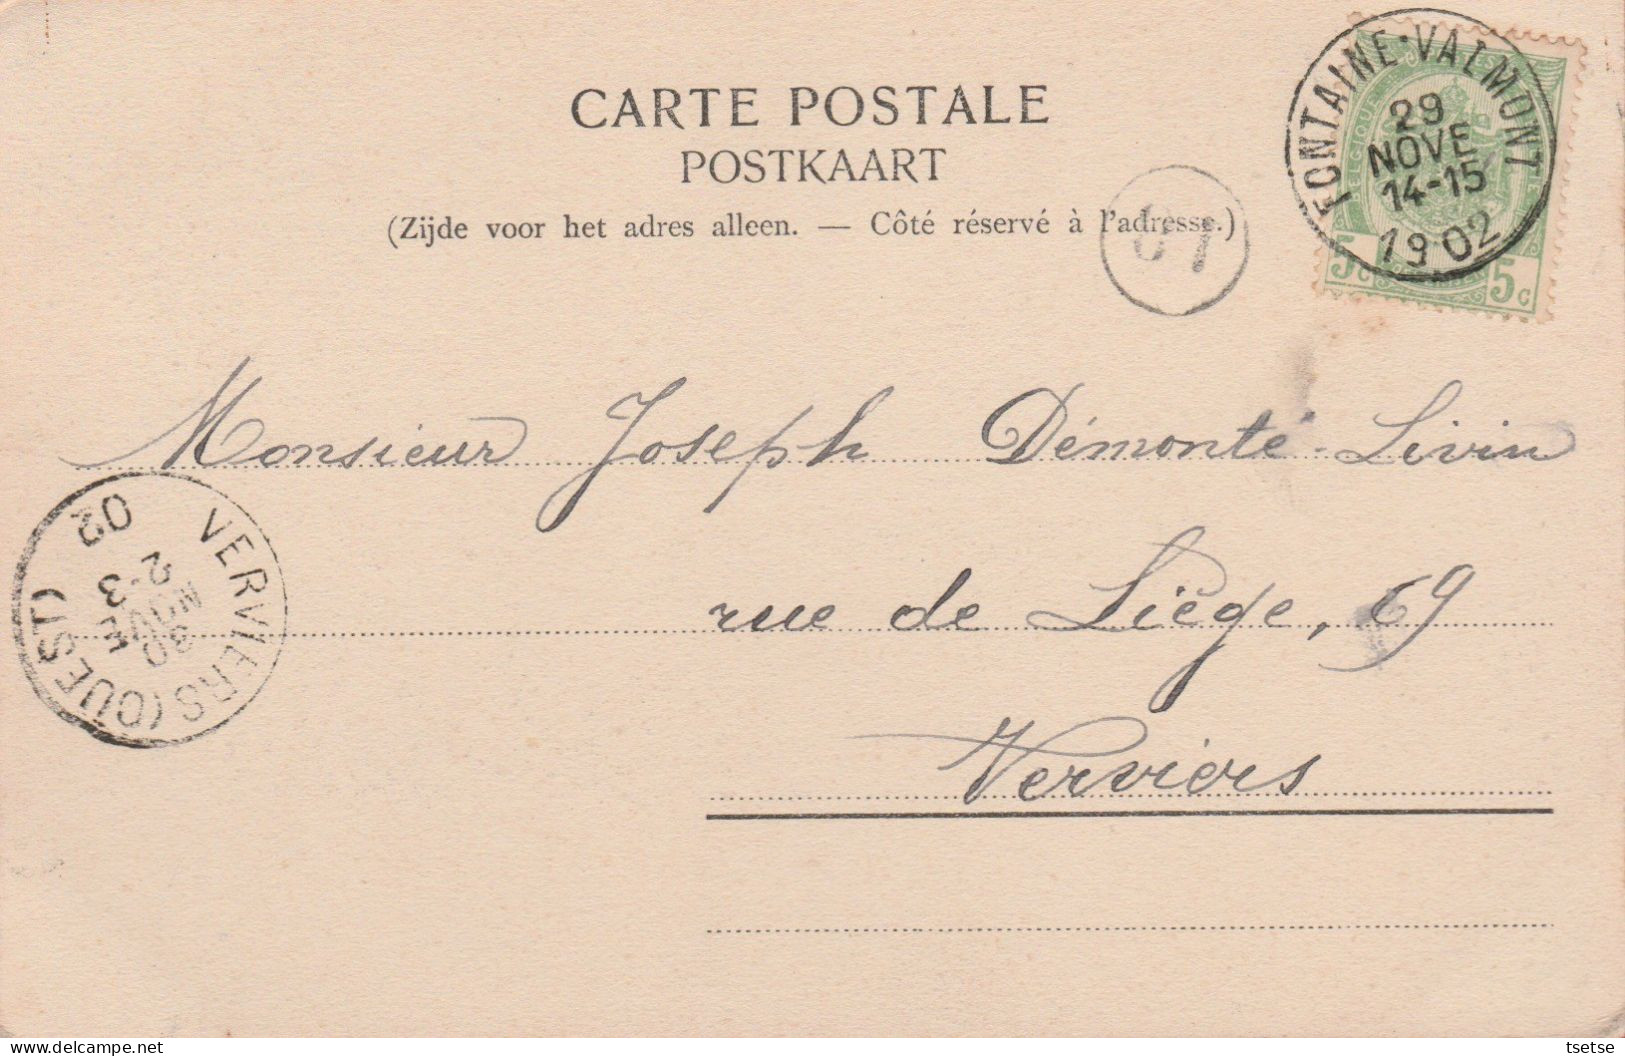 CARTE POSTALE
POSTKAART
(Zijde voor het adres alleen. — Côté réservé à l'adresse.)
FONTAINE-VALMONT
29
NOVE
14-15
1902
5c 5c
Monsieur Joseph Démonté-Livin
rue de Liège, 69
Verviers
VERVIERS (OUEST)
30
NOVE
2-3
02
Delcampe.net
tsetse